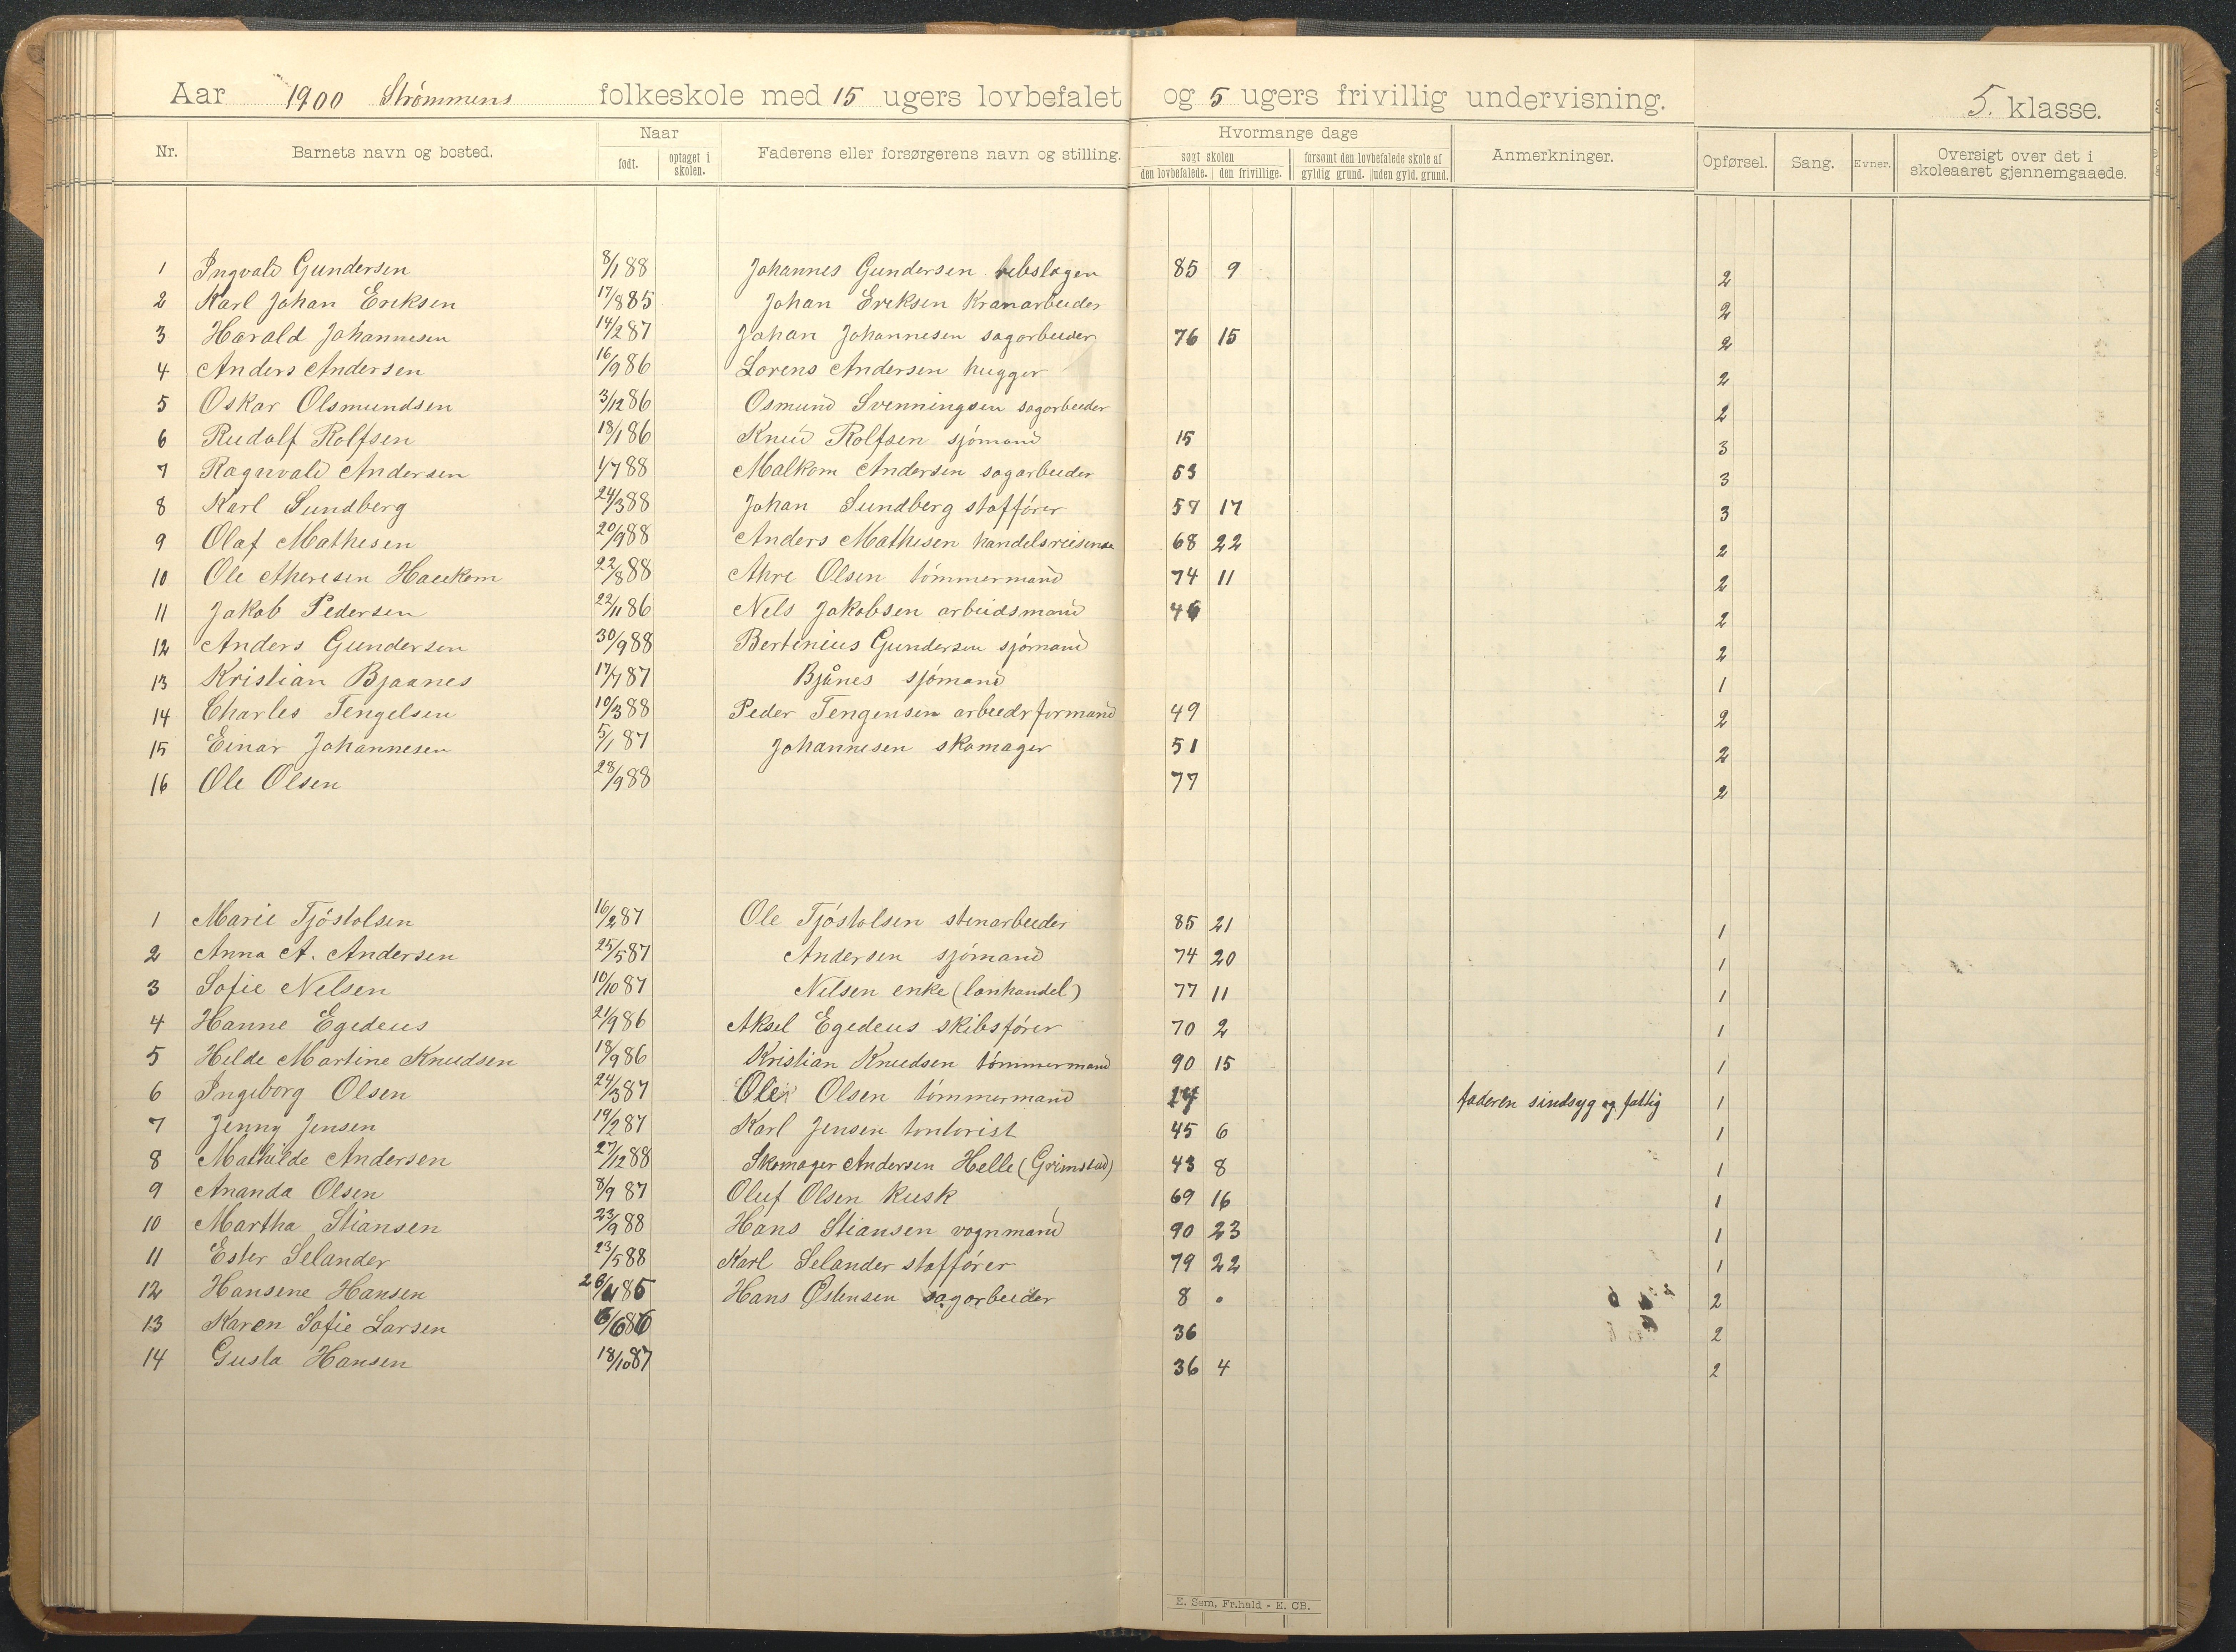 Aar 1900 Strømmens folkeskole med 15 ugers lovbefalet og 5 ugers frivillig undervisning. 5. klasse.
Nr. Barnets navn og bosted. Naar født. optaget i skolen. Faderens eller forsørgerens navn og stilling. Hvormange dage søgt skolen den lovbefalede. den frivillige. forsømt den lovbefalede skole af gyldig grund. uden gyld. grund. Anmerkninger. Opførsel. Sang. Evner. Oversigt over det i skoleaaret gjennemgaaede.
1 Ingvald Gundersen 8/1 88 Johannes Gundersen rebslagen 85 9 2
2 Karl Johan Eriksen 17/8 85 Johan Eriksen Kranarbeider 2
3 Harald Johannesen 14/2 87 Johan Johannesen sagarbeider 76 15 2
4 Anders Andersen 16/9 86 Lorens Andersen hugger 2
5 Oskar Olsmundsen 3/12 86 Osmund Svenningsen sagarbeider 2
6 Rudolf Rolfsen 18/1 86 Knud Rolfsen sjómand 15 3
7 Ragnvald Andersen 1/7 88 Malkom Andersen sagarbeider 53 3
8 Karl Sundberg 24/3 88 Johan Sundberg staffórer 57 17 3
9 Olaf Mathesen 20/9 88 Anders Mathesen handelsreisende 68 22 2
10 Ole Atheresen Haukom 22/8 88 Athre Olsen tómmermand 74 11 2
11 Jakob Pedersen 22/11 86 Nels Jakobsen arbeidsmand 46 2
12 Anders Gundersen 30/9 88 Bertinius Gundersen sjómand 2
13 Kristian Bjaanes 17/7 87 Bjånes sjómand 1
14 Charles Tengelsen 10/3 88 Peder Tengensen arbeidsformand 49 2
15 Einar Johannesen 5/1 87 Johannesen skomager 51 2
16 Ole Olsen 28/9 88 77 2
1 Marie Tjóstolsen 16/2 87 Ole Tjóstolsen stenarbeider 85 21 1
2 Anna A. Andersen 25/5 87 Andersen sjómand 74 20 1
3 Sofie Nelsen 10/10 87 Nelsen enke (lanhandel) 77 11 1
4 Hanne Egedeus 21/9 86 Aksel Egedeus skibsfórer 70 2 1
5 Helde Martine Knudsen 18/9 86 Kristian Knudsen tómmermand 90 15 1
6 Ingeborg Olsen 24/3 87 Ole Olsen tómmermand 14 faderen sindsyg og fattig 1
7 Jenny Jensen 19/2 87 Karl Jensen kontorist 45 6 1
8 Mathilde Andersen 27/12 88 Skomager Andersen Helle (Grimstad) 43 8 1
9 Ananda Olsen 8/9 87 Oluf Olsen Kusk 69 16 1
10 Martha Stiansen 23/9 88 Hans Stiansen vognmand 90 23 1
11 Ester Selander 23/5 88 Karl Selander staffórer 79 22 1
12 Hansene Hansen 26/4 85 Hans Østensen sagarbeider 8 0 2
13 Karen Sofie Larsen 6/6 86 36 2
14 Gusta Hansen 18/10 87 36 4 2
E. Sem, Fr.hald - E. CB.